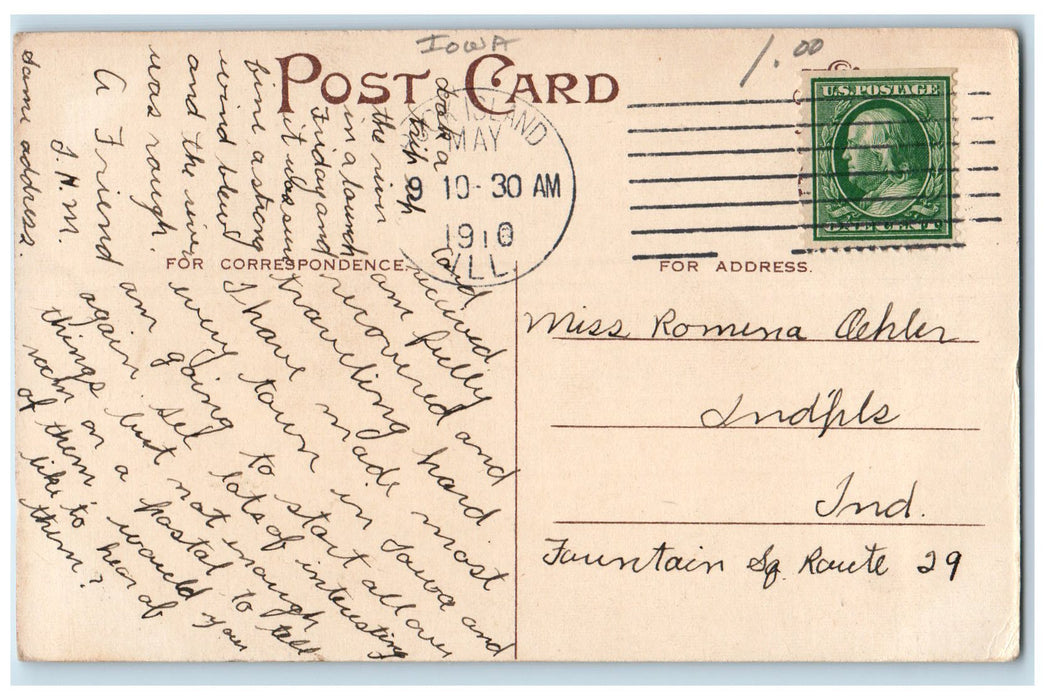 IOWA
1.00
POST CARD
ISLAND
MAY
9 10-30 AM
1910
ILL.
U.S. POSTAGE
FOR CORRESPONDENCE.
FOR ADDRESS.
Miss Romena Oehler
Ind'pls
Ind.
Fountain Sq. Route 29
Card received
am fully
recovered and
traveling hard
I have made most
every town in Iowa and
am going to start all over
again. See lots of interesting
things but not enough
room on a postal to tell
of them, would you
like to hear of
them?
Took a
trip up
the river
in a launch
Friday and
it was sure
fine a strong
wind blew
and the river
was rough.
A Friend
J. H. M.
same address.